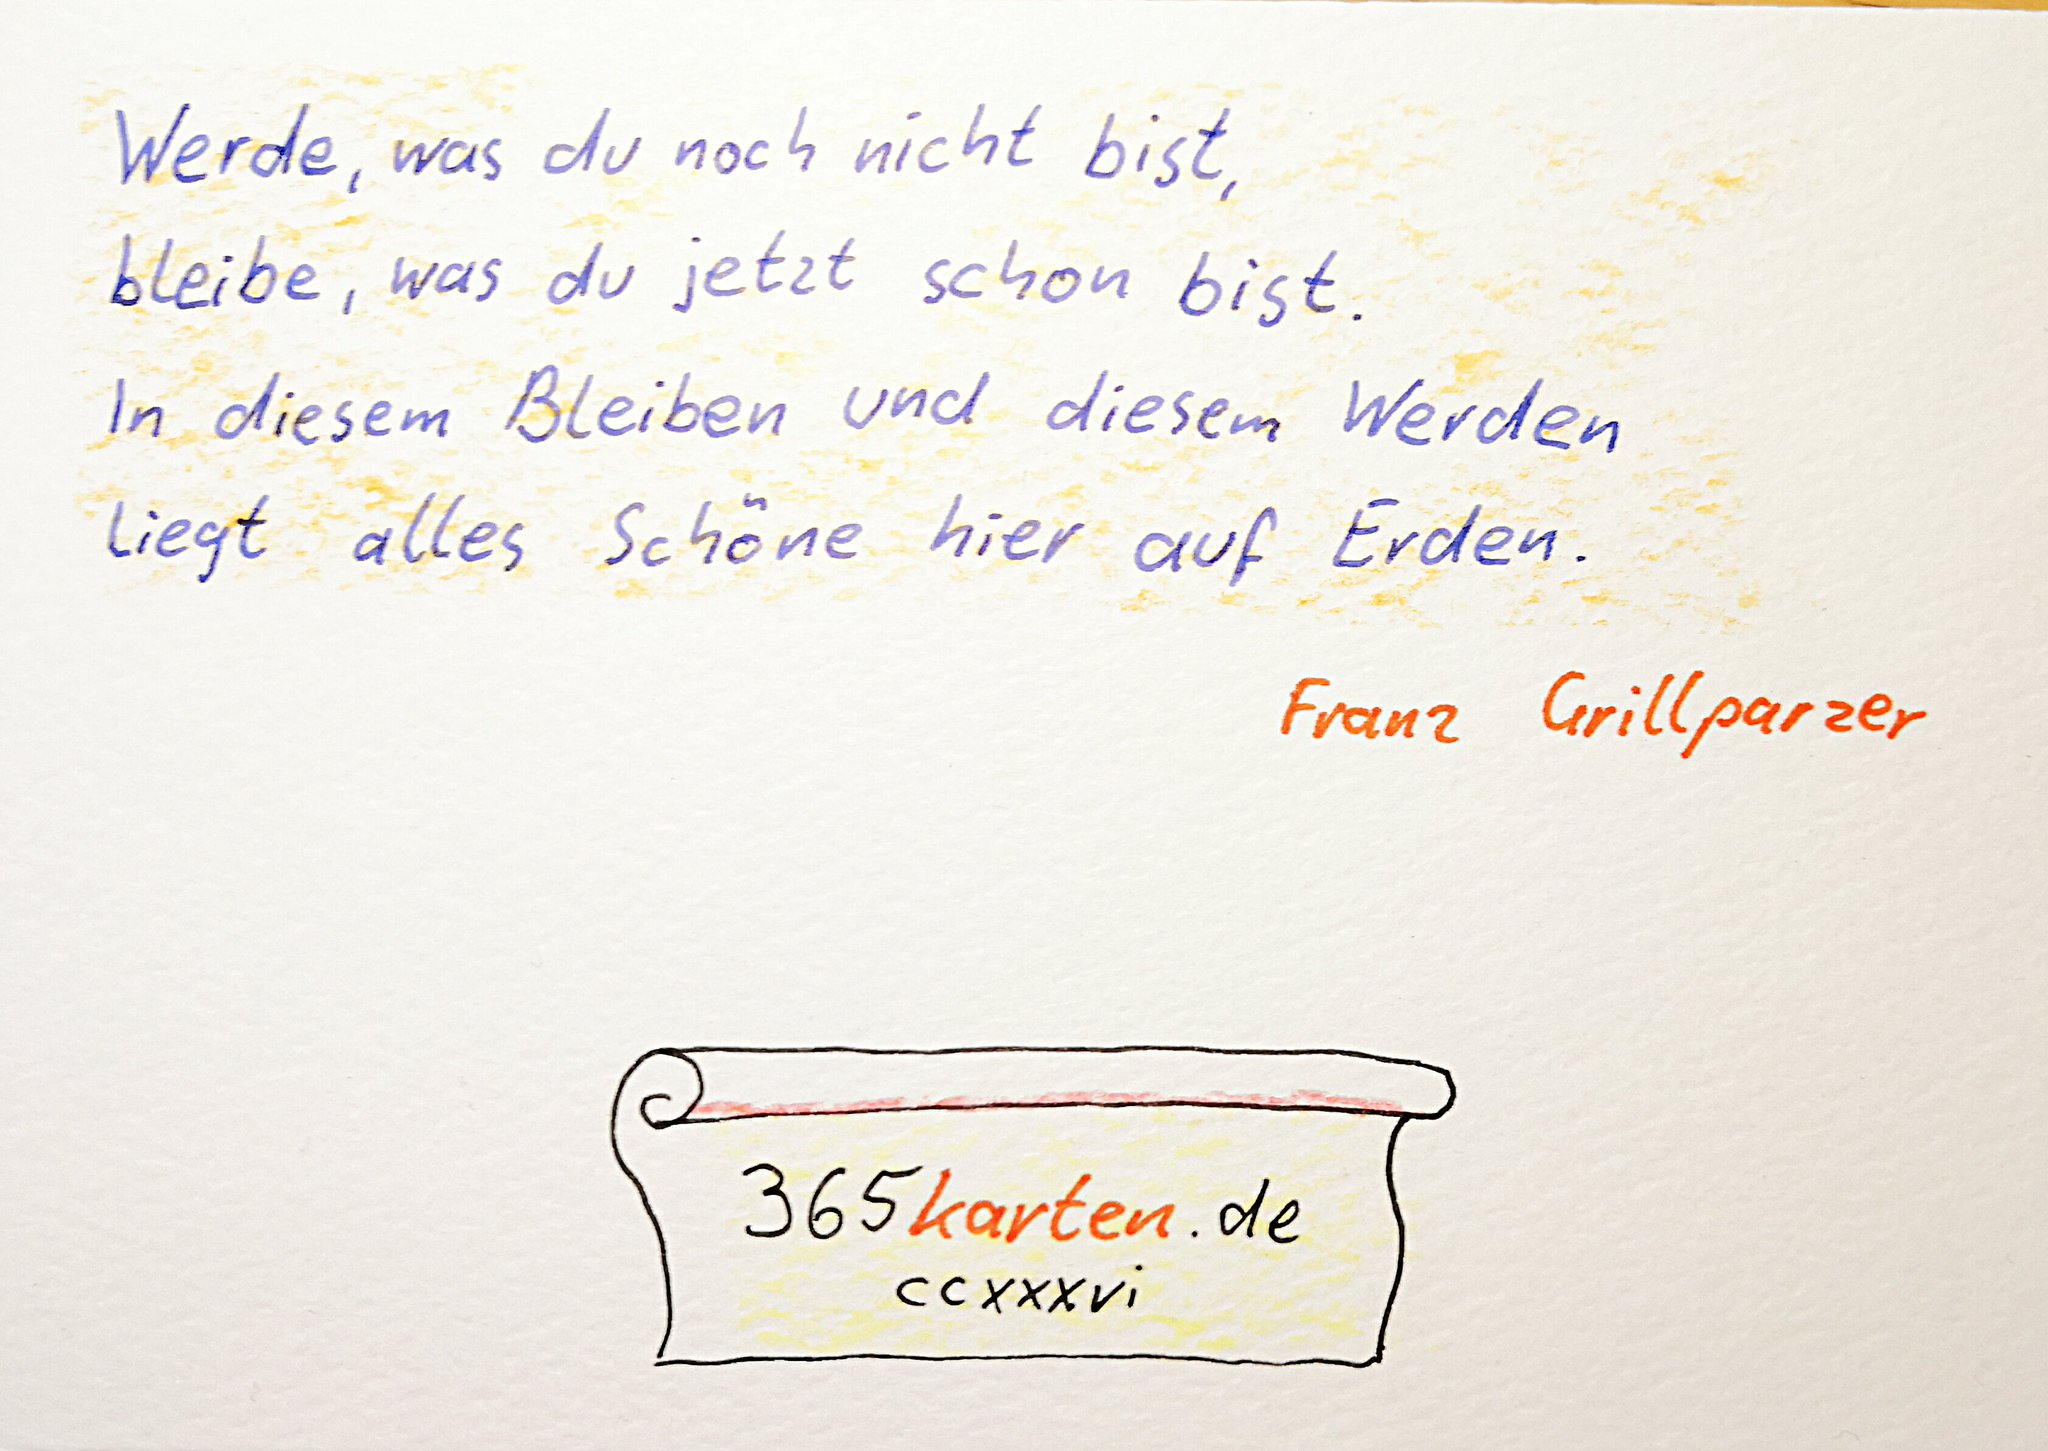 Werde, was du noch nicht bist,
bleibe, was du jetzt schon bist.
In diesem Bleiben und diesem Werden
liegt alles Schöne hier auf Erden.
Franz Grillparzer
365karten.de
ccxxxvi